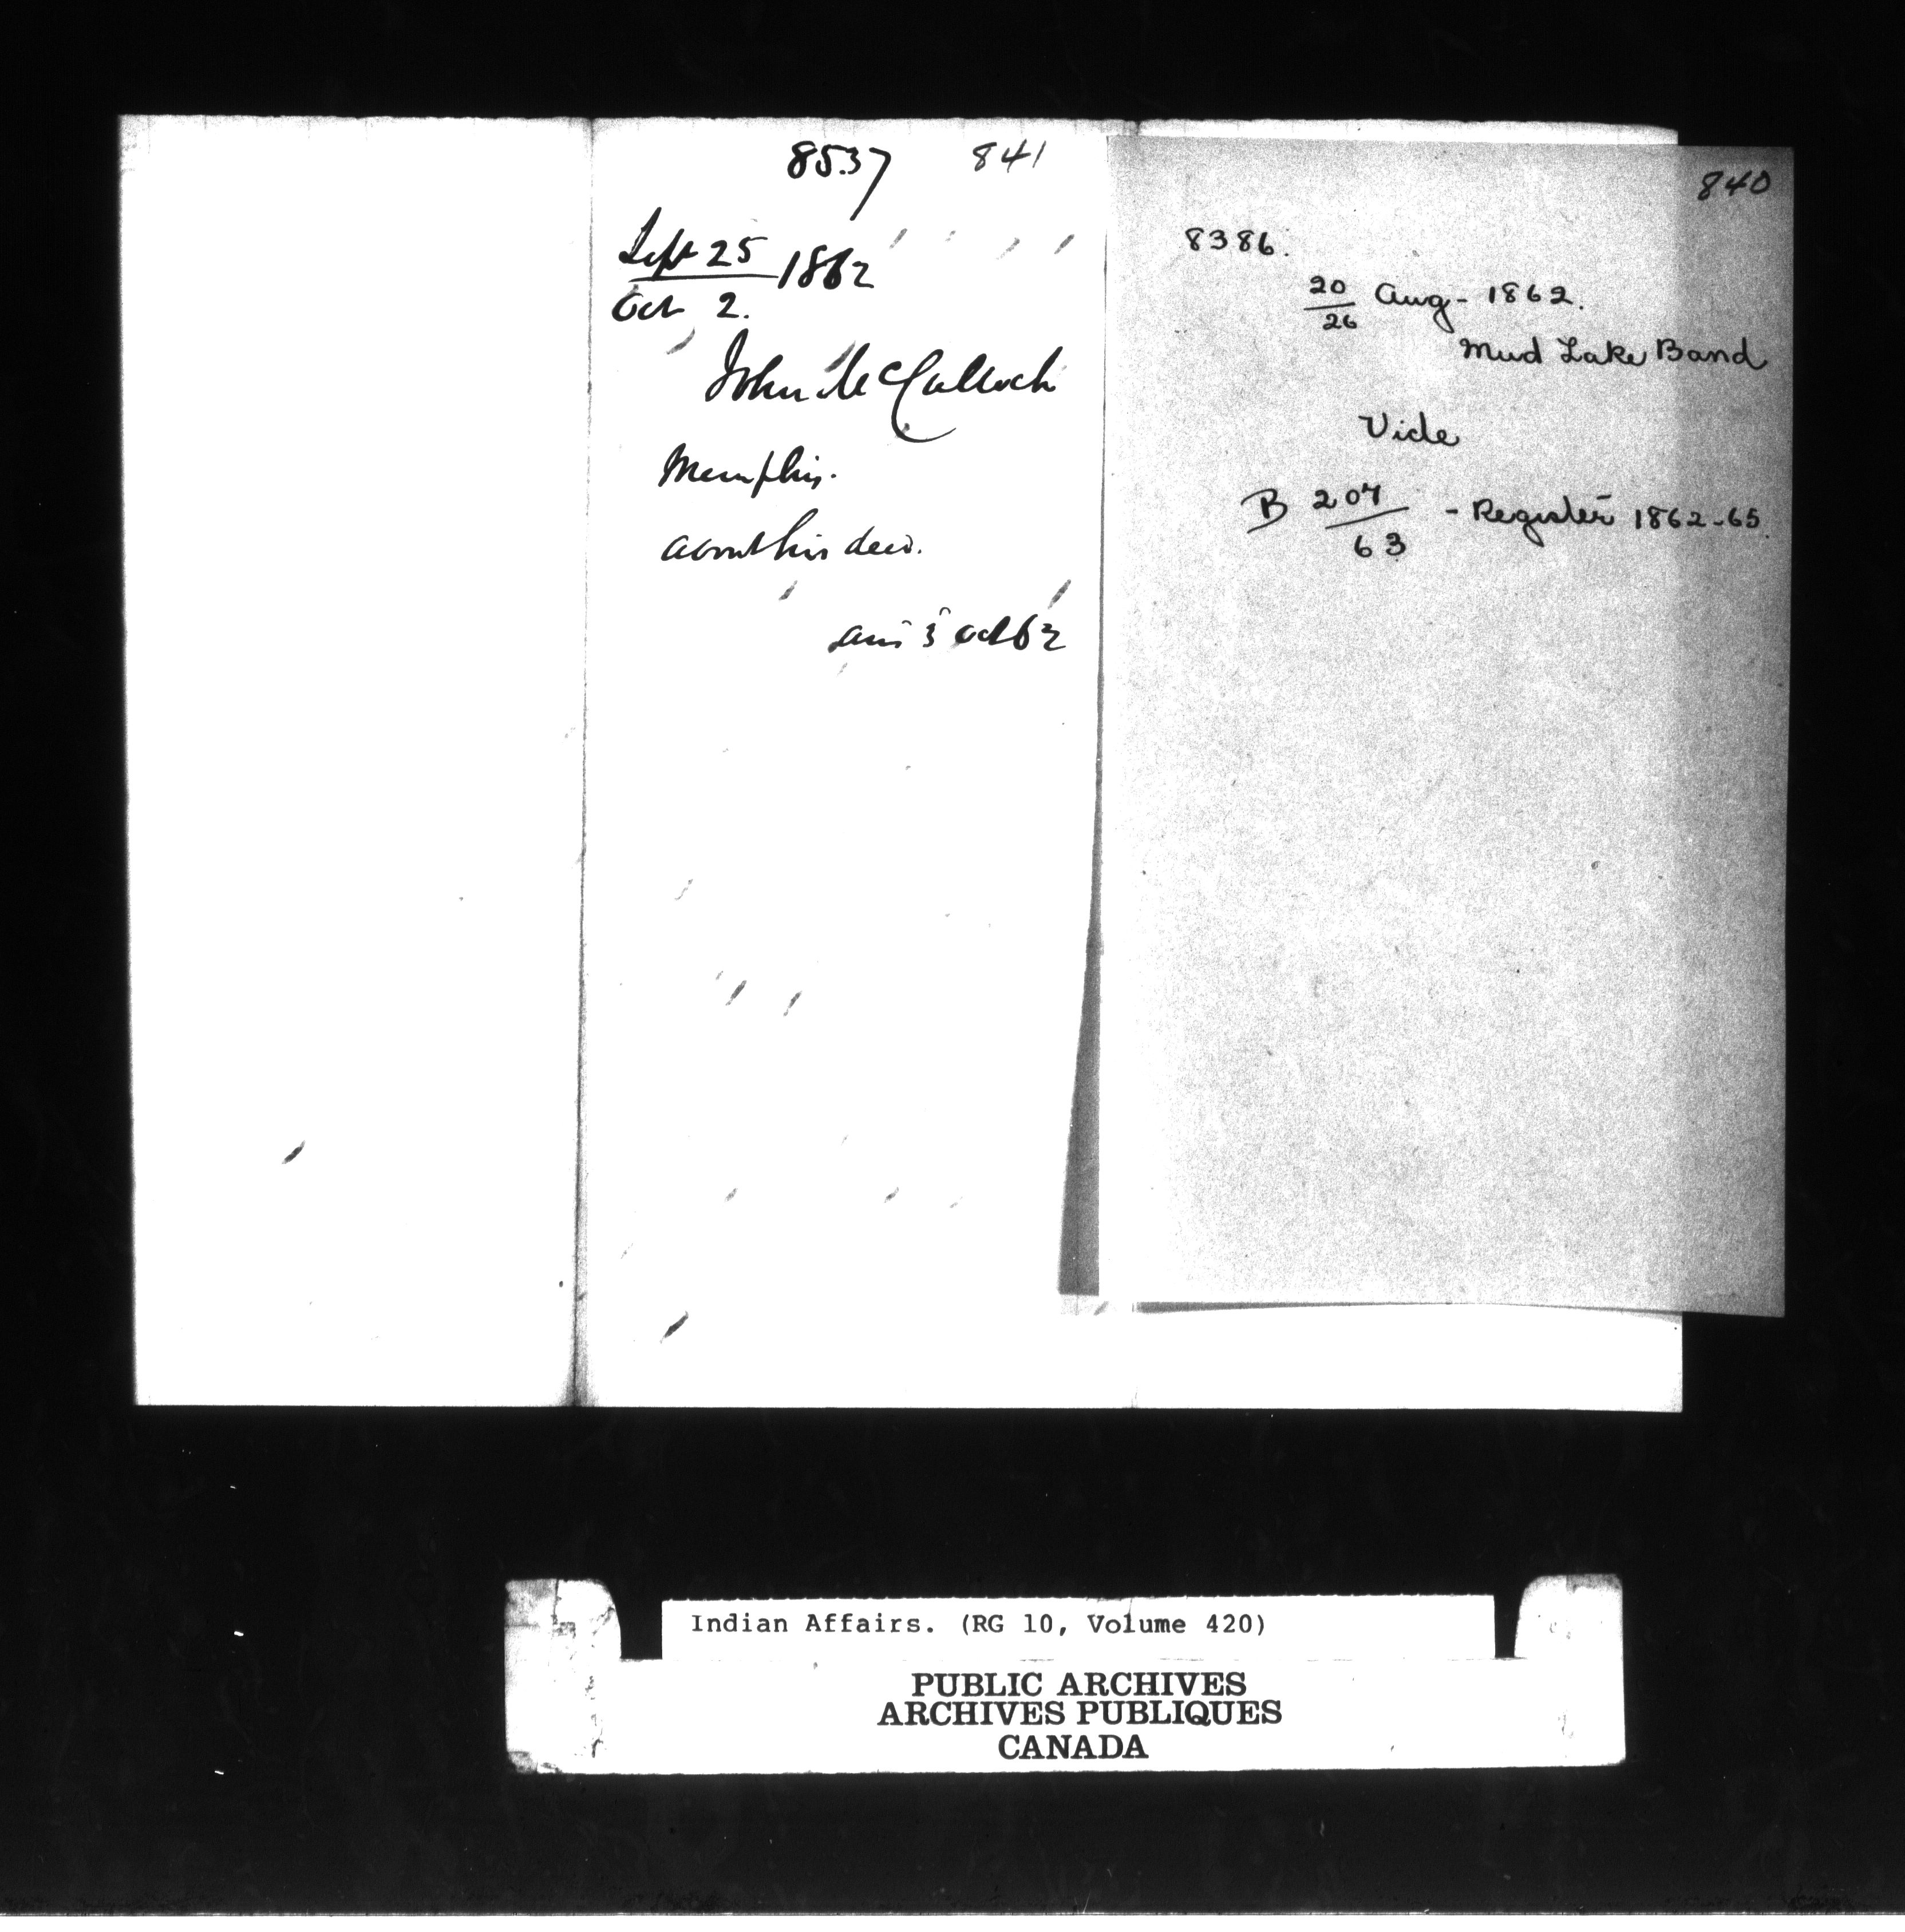 8537 841
Sept 25
1862
Oct 2.
John McCulloch
Memphis.
about his deed.
ans 3 Oct 62
840
8386.
20
26
Aug - 1862.
Mud Lake Band
Vide
B 207
63
- Register 1862-65
Indian Affairs. (RG 10, Volume 420)
PUBLIC ARCHIVES
ARCHIVES PUBLIQUES
CANADA